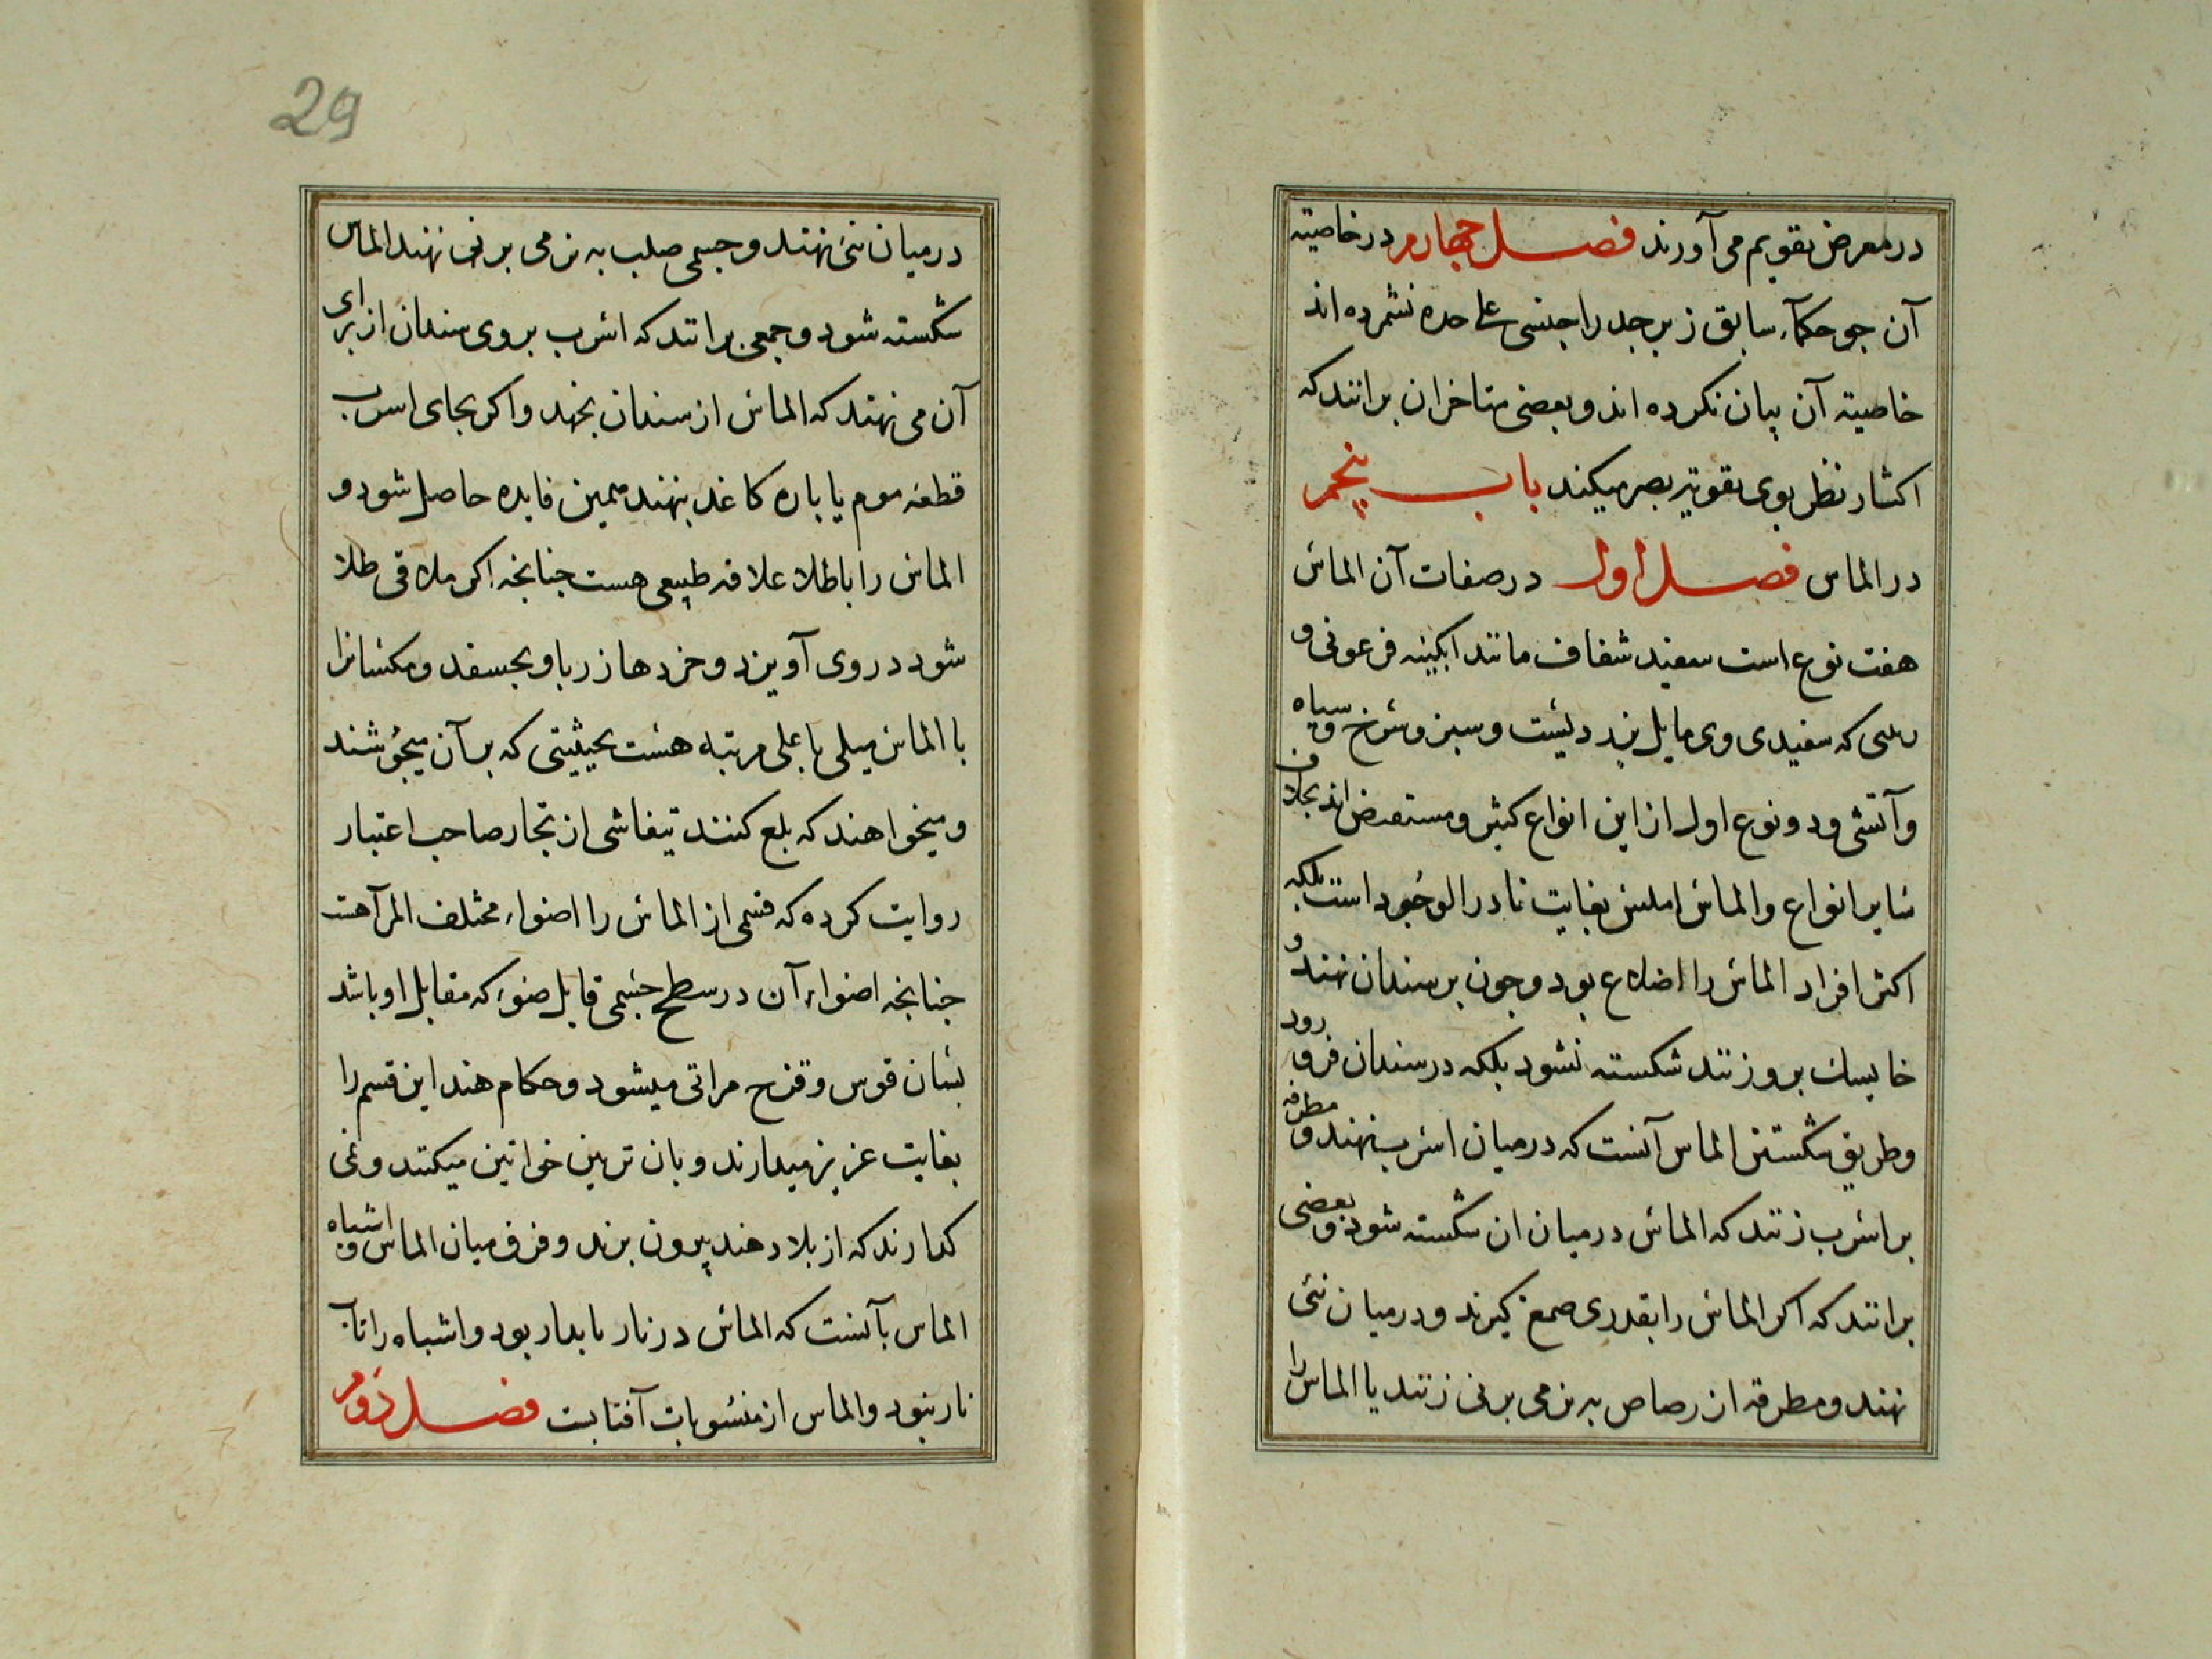 در معرض تقویم می آورند فصل چهارم در خاصیته
آن جو حکمآء سابق زبرجد را جنسی علی حده نشمرده اند
خاصیته آن بیان نکرده اند و بعضی متاخران برانند که
اکثار نظر بوی تقویة بصر میکند باب پنجم
در الماس فصل اول در صفات آن الماس
هفت نوع است سفید شفاف مانند ابکینه فرعونی و
که سفیدی وی مایل بزردیست و سبز و سرخ و سیاه
و آتشی و دو نوع اول از این انواع کثیر و مستفیض اند بخلاف
سایر انواع و الماس املس بغایت نادر الوجود است بلکه
اکثر افراد الماس را اضلاع بود و جون بر سندان نهند و
خایسک برو زنند شکسته نشود بلکه در سندان فرو رود
و طریق شکستن الماس آنست که در میان اسرب بنهند و مطرقه
بر اسرب زنند که الماس در میان ان شکسته شود و بعضی
برانند که اکر الماس را بقدری صمغ کیرند و در میان نئی
نهند و مطرقه از رصاص به نرمی بر نی زنند یا الماس را
29
در میان نئی نهند و جسمی صلب به نرمی بر نی نهند الماس
شکسته شود و جمعی برانند که اسرب بر وی سندان از برای
آن می نهند که الماس از سندان نجهد و اکر بجای اسرب
قطعه موم یا باره کاغد بنهند همین فایده حاصل شود و
الماس را باطلا علاقه طبیعی هست جنانجه اکر ملاقی طلا
شود در وی آویزد و خردها زر باو بجسفد و مکسانرا
با الماس میلی باعلی مرتبه هست بحیثیتی که بر آن میجوشند
و میخواهند که بلع کنند تیفاشی از تجار صاحب اعتبار
روایت کرده که قسمی از الماس را اضواء مختلف المرآ هست
جنانجه اضواء آن در سطح جسمی قابل ضوء که مقابل او باشد
بسان قوس و قزح مرائی میشود و حکام هند این قسم را
بغایت عزیز میدارند و بان تزیین خواتین میکنند و نمی
کدارند که از بلاد هند بیرون برند و فرق میان الماس و اشباه
الماس بآنست که الماس در نار بایدار بود و اشباه را تاب
نار نبود و الماس از منسوبات آفتابست فصل دوم